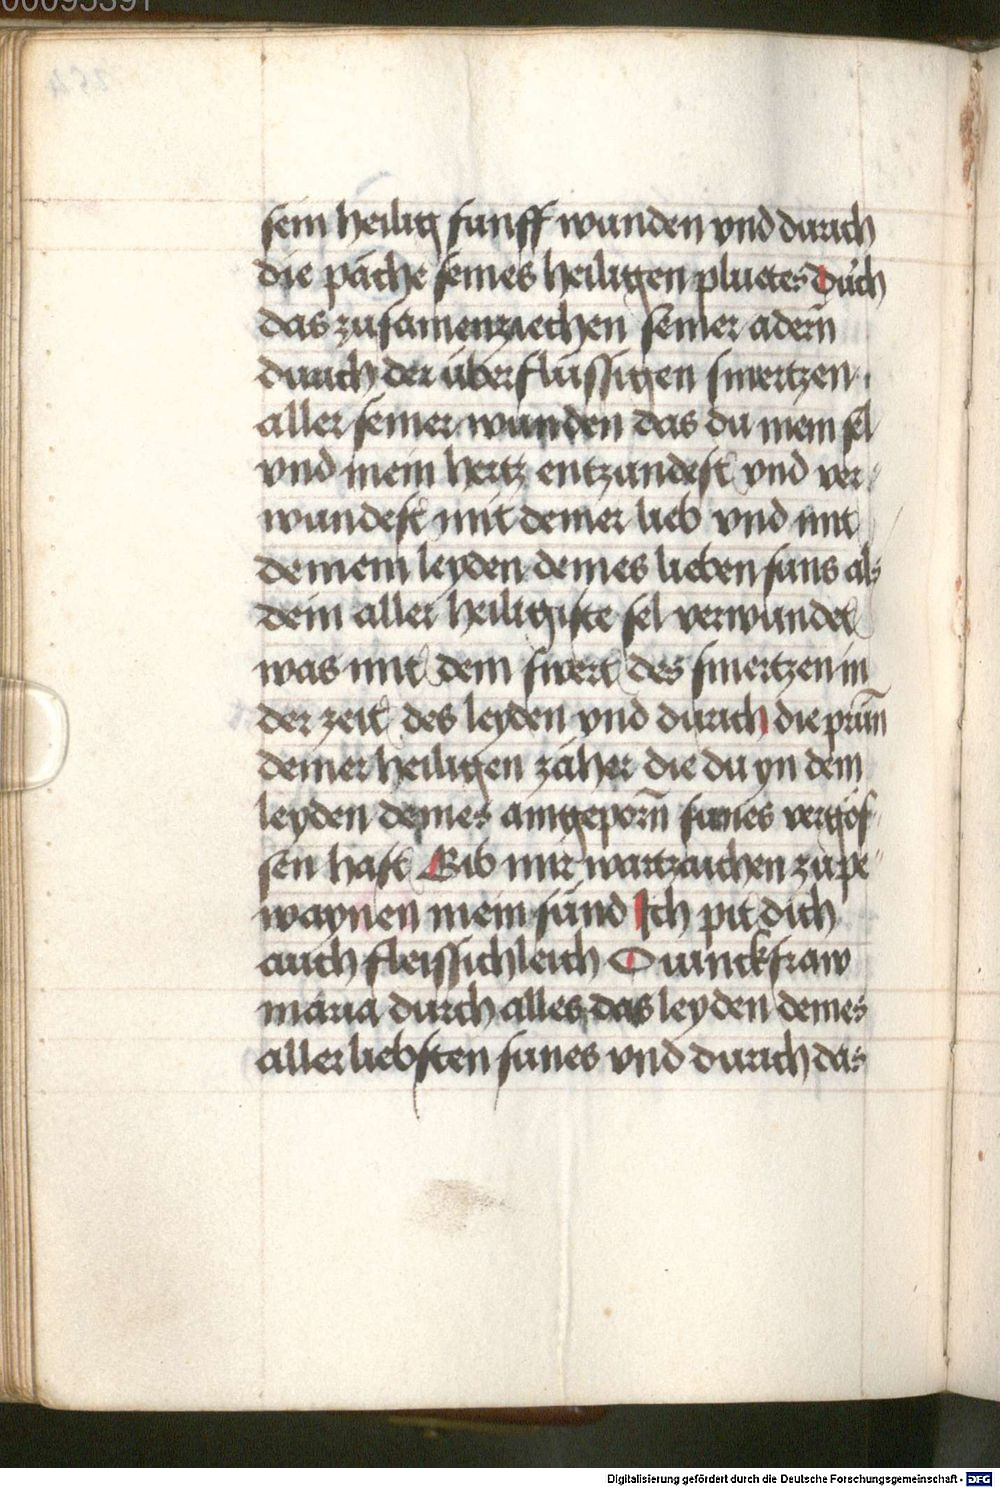 00095391
sein heilig funff wunden vnd durich
die päche seines heiligen pluetes Duich
das zusamenziechen seiner adern̄
durich der überflüssigen smertzen
aller seiner wunden das du mein sel
vnd mein hertz entzundest vnd ver⸗
wundest mit deiner lieb vnd mit
deinem leyden deines lieben suns als
dein aller heiligiste sel verwundet
was mit dem swert des smertzen in
der zeit des leyden vnd durich die prün̄
deiner heiligen zäher die du yn dem
leyden deines aingeporn̄ sunes vergos⸗
sen hast Gib mir wartzaichen zu pe⸗
waynen mein sünd Ich pit dich
auch fleissichleich O iunckfraw
maria durch alles das leyden deines
aller liebsten sunes vnd durich das
Digitalisierung gefördert durch die Deutsche Forschungsgemeinschaft - DFG